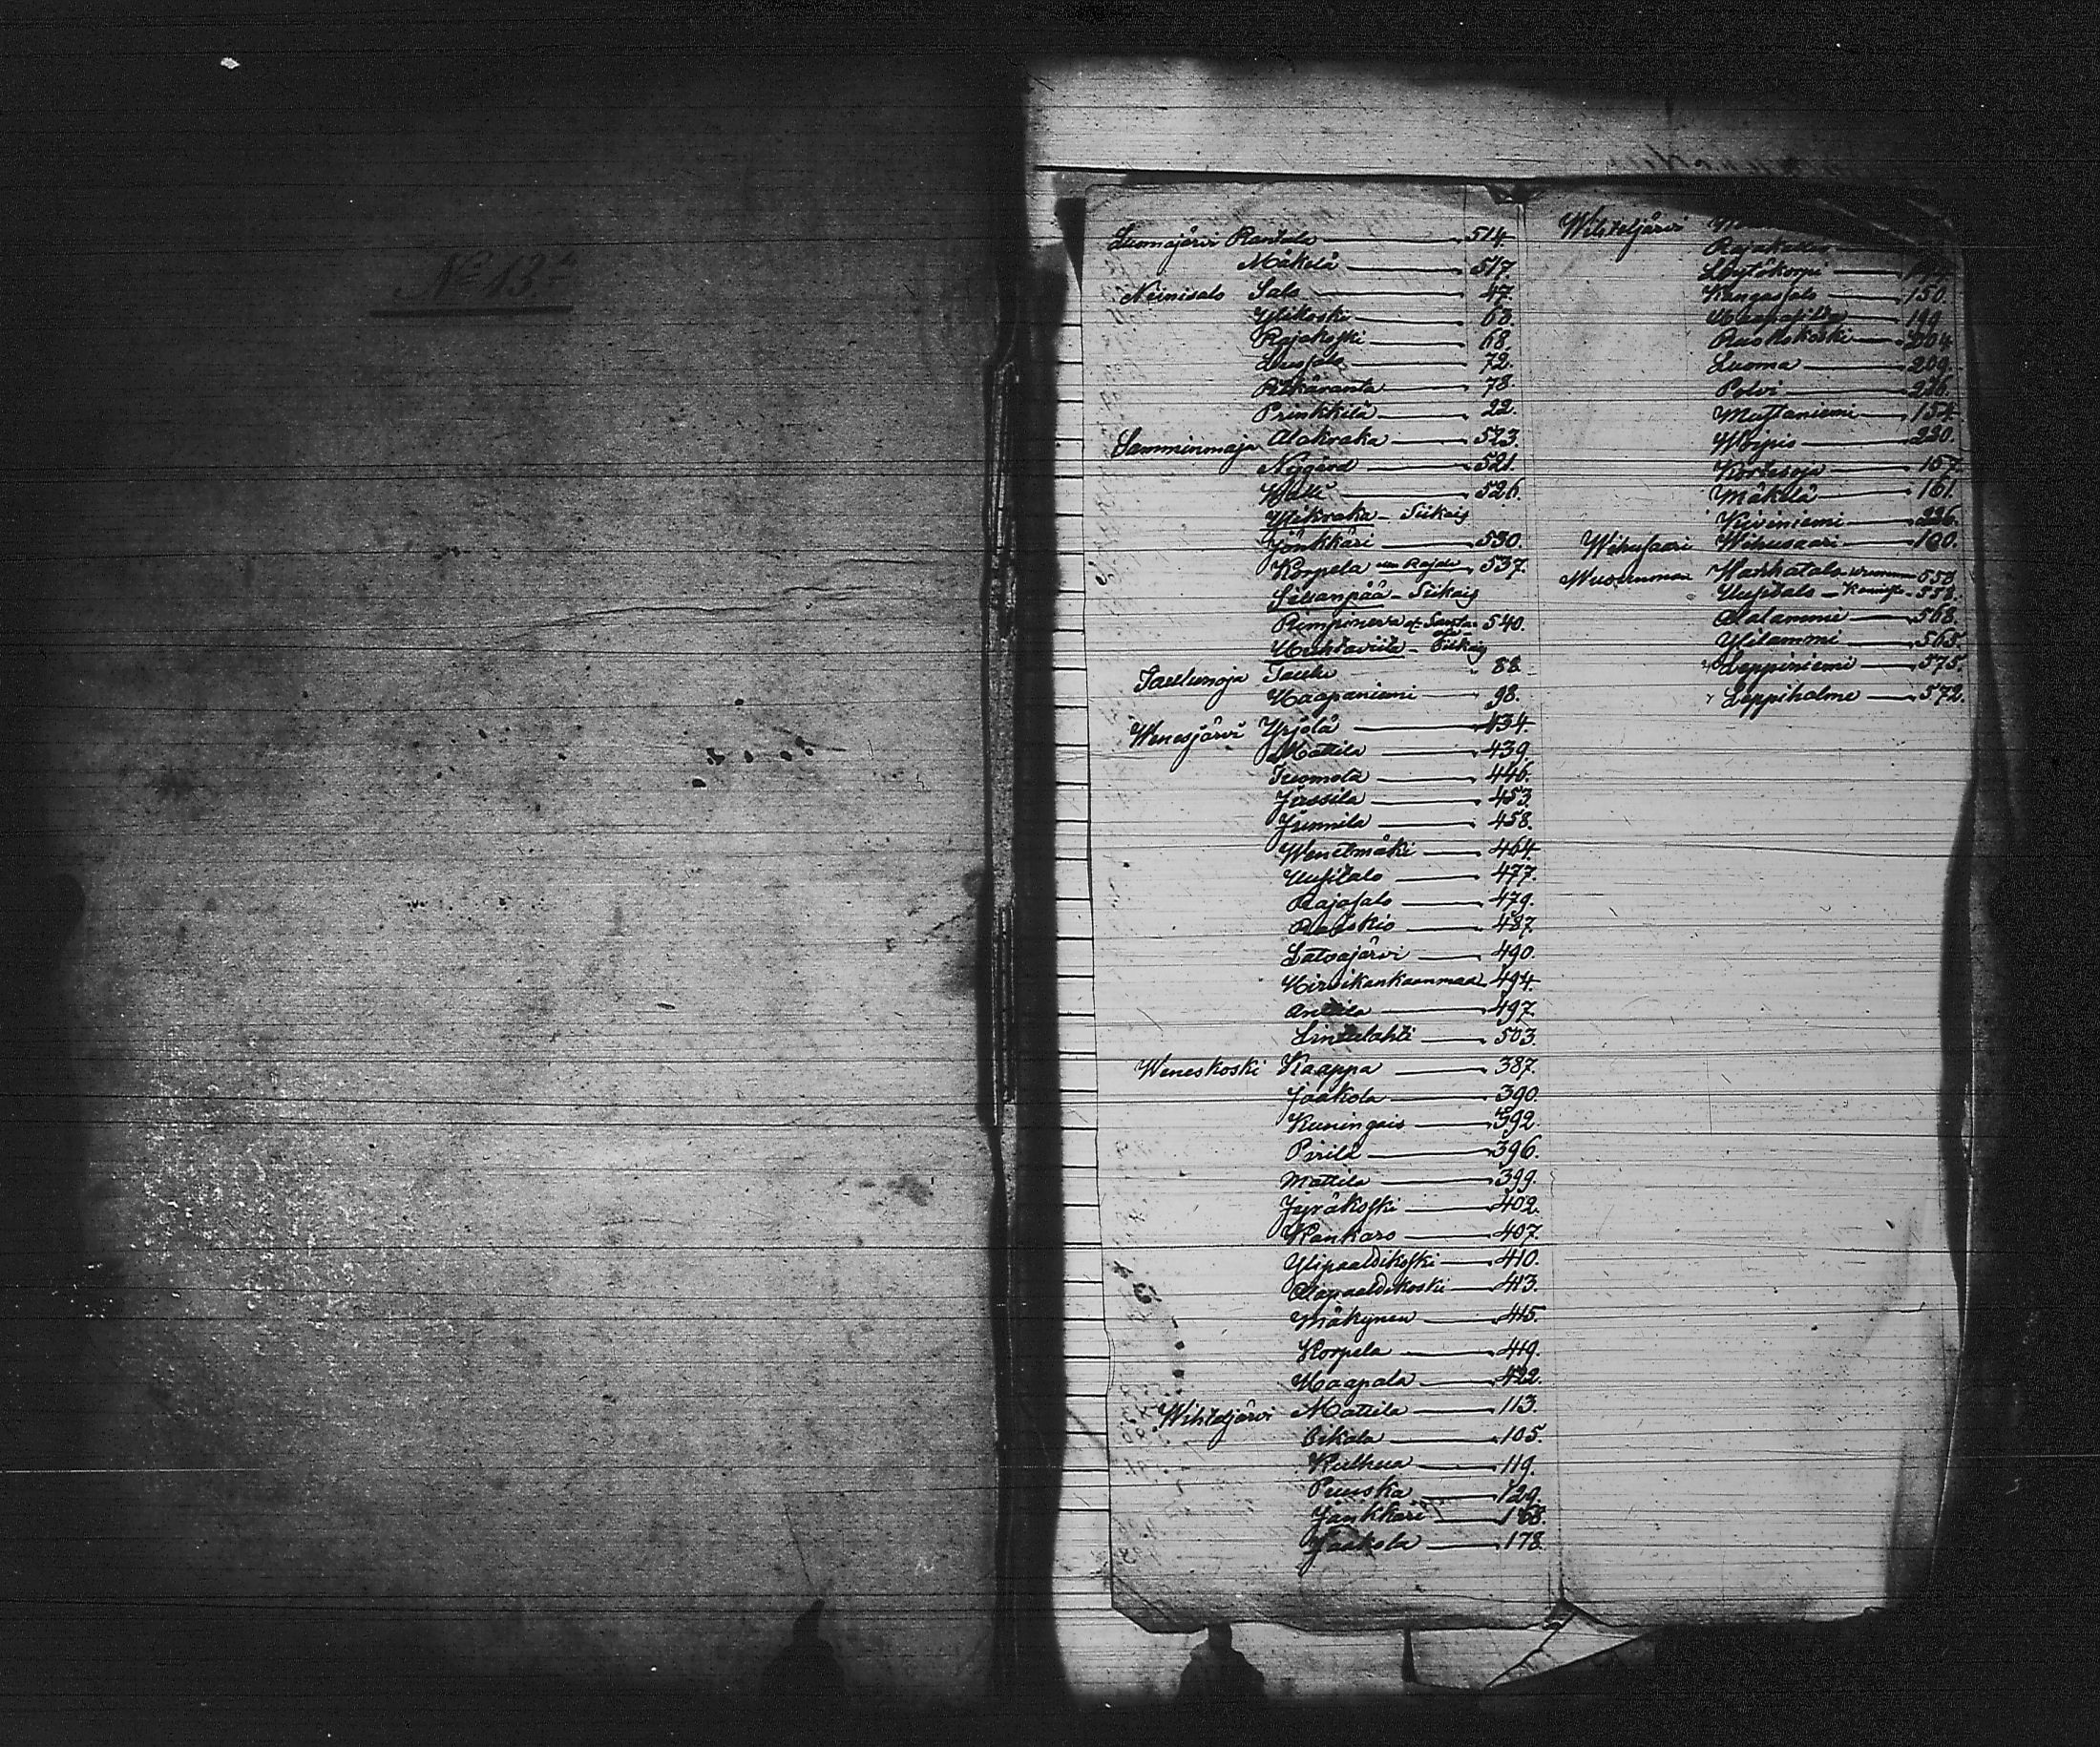 No 13.
Luomajärvi Rantala 514.
Mäkelä 517.
Neinisalo Salo 47.
Ylikoski 63.
Rajakoski 68.
Uusitalo 72.
Pitkäranta 78.
Prinkkilä 22.
Samminmaja Alakraka 523.
Nygård 521.
Halli 526.
Ylikraka - Siikais
Jönkkäri 530.
Korpela 537.
Sillanpää - Siikais
540.
- Siikais
Taulunoja Taulu 88.
Haapaniemi 98.
Wenesjärvi Yrjölä 434.
Mattila 439.
Tuomola 446.
Jussila 453.
Junnila 458.
Wenelmäki 464.
Uusitalo 477.
Rajasalo 479.
Rauskio 487.
Latvajärvi 490.
Hirsikankaanmaa 494.
Anttila 497.
Lintulahti 503.
Weneskoski Kaappa 387.
Jaakola 390.
Kuningais 392.
Pirilä 396.
Mattila 399.
Jyräkoski 402.
Kankaro 407.
Ylipaaldikoski 410.
Alapaaldikoski 413.
Mäkynen 415.
Korpela 419.
Haapala 422.
Wihteljärvi Mattila 113.
Oikala 105.
Kulkua 119.
Puuska 129.
Jänkkäri 168.
Jaakola 178.
Wihteljärvi
Rajakallio
Löytökorpi
Kangassalo 150.
Haapasilda 199.
Ruohokoski 204.
Luoma 209.
Polvi 226.
Mustaniemi 154.
230.
Kortesoja 157.
Mäkelä 161.
Kiviniemi 226.
Wihusaari Wihusaari 100.
Harhatalo 558.
Uusitalo 558.
Alalammi 568.
Ylilammi 565.
Leppiniemi 575.
Leppiholme 572.